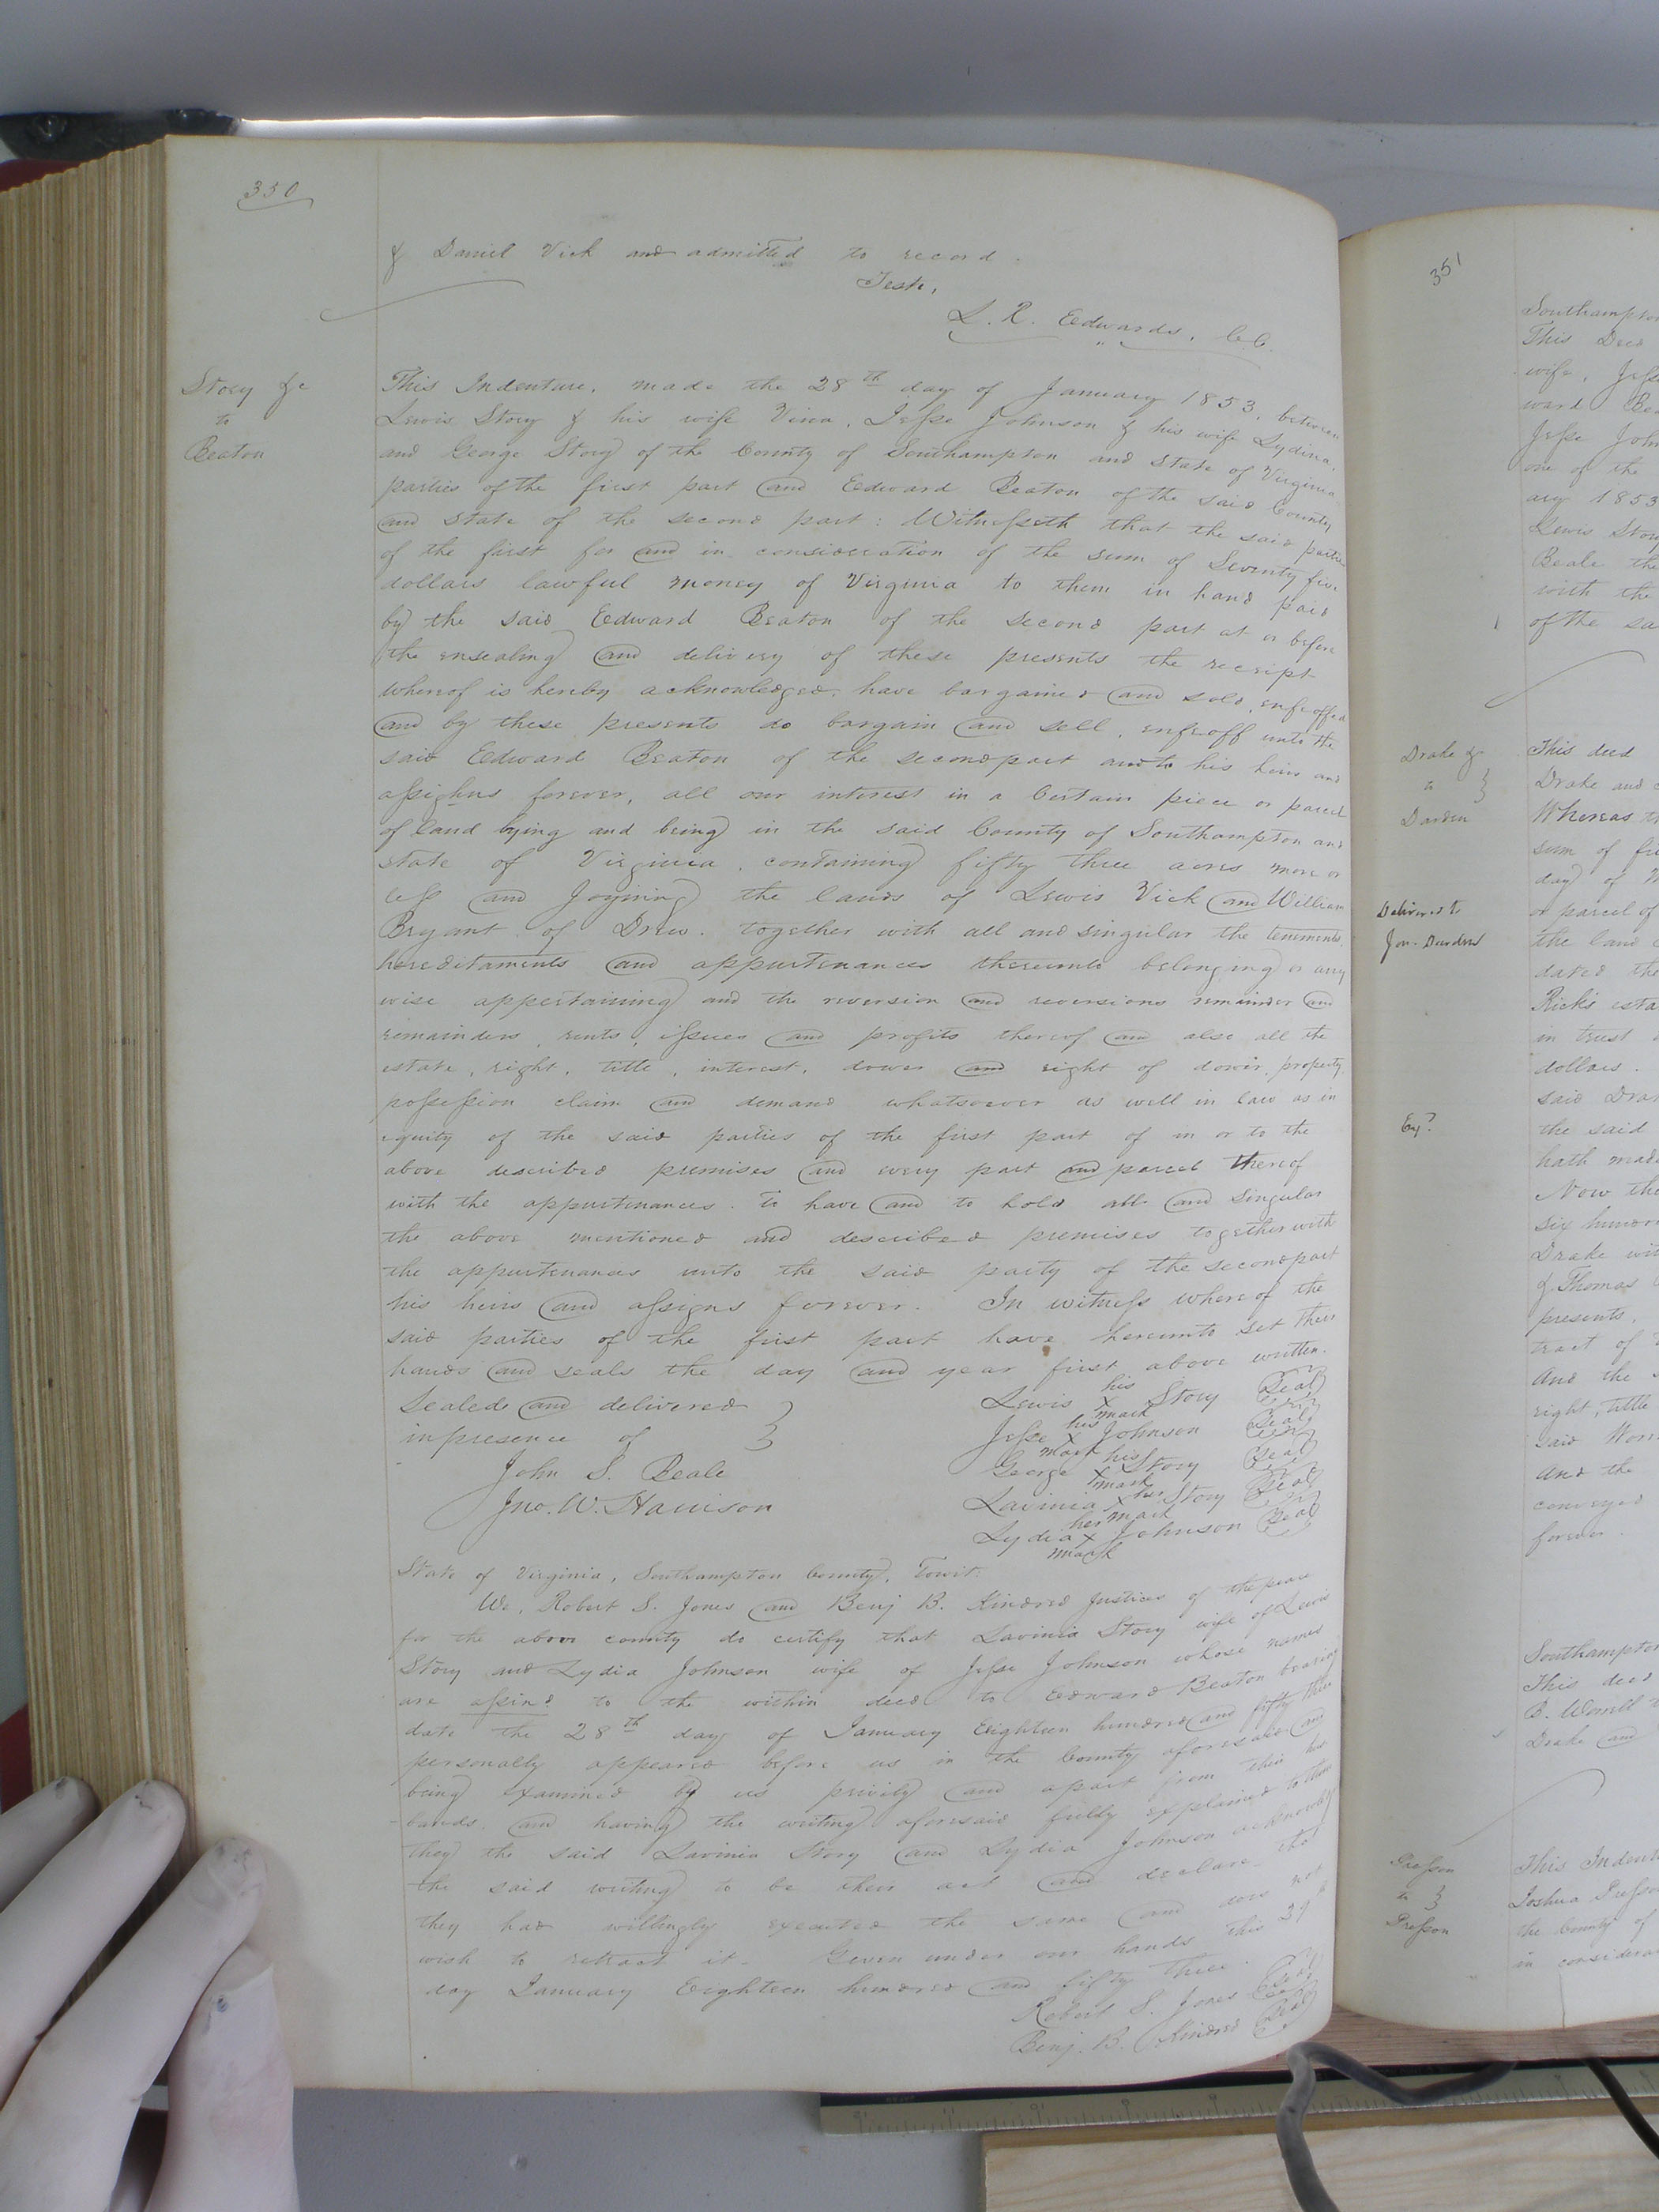 350
& Daniel Vick and admitted to record.
Teste,
L. R. Edwards, C.C.
Story &c
to
Beaton
This Indenture, made the 28th day of January 1853, between
Lewis Story & his wife Vina, Jesse Johnson & his wife Lydina,
and George Story of the County of Southampton and State of Virginia
parties of the first part and Edward Beaton of the said County
and State of the second part: Witnesseth that the said parties
of the first for and in consideration of the sum of Seventy five
dollars lawful money of Virginia to them in hand paid
by the said Edward Beaton of the second part at or before
the ensealing and delivery of these presents the receipt
whereof is hereby acknowledged, have bargained and sold, enfeoffed
and by these presents do bargain and sell, enfeoff unto the
said Edward Beaton of the second part and to his heirs and
assighns forever, all our interest in a Certain piece or parcel
of land lying and being in the said County of Southampton and
state of Virginia, containing fifty three acres more or
less and Joyining the lands of Lewis Vick and William
Bryant of Drew. together with all and singular the tenements
hereditaments and appurtenances thereunto belonging or any
wise appertaining and the reversion and reversions remainder and
remainders, rents, issues and profits thereof and also all the
estate, right, title, interest, dower and right of dower, property
possession claim and demand whatsoever as well in law as in
equity of the said parties of the first part of in or to the
above described premises and every part and parcel thereof
with the appurtenances. To have and to hold all and Singular
the above mentioned and described premises together with
the appurtenances unto the said party of the second part
his heirs and assigns forever. In witness whereof the
said parties of the first part have hereunto set their
hands and seals the day and year first above written.
Sealed and delivered }
in presence of }
John S. Beale
Jno. W. Harrison
Lewis his X mark Story Seal
Jesse his X mark Johnson Seal
George his X mark Story Seal
Lavinia her X mark Story Seal
Lydia her X mark Johnson Seal
State of Virginia, Southampton County, Towit:
We, Robert S. Jones and Benj B. Kindred Justices of the peace
for the above county do certify that Lavinia Story wife of Lewis
Story and Lydia Johnson wife of Jesse Johnson whose names
are assind to the within deed to Edward Beaton bearing
date the 28th day of January Eighteen hundred and fifty three
personally appeared before us in the County aforesaid and
being examined by us privily and apart from their hus
bands, and having the writing aforesaid fully explained to them
they the said Lavinia Story and Lydia Johnson acknowledge
the said writing to be their act and declare that
they had willingly executed the same and dose not
wish to retract it. Given under our hands this 29th
day January Eighteen hundred and fifty three.
Robert S. Jones Seal
Benj. B. Kindred Seal
351
Southampton
This Deed
wife, Jesse
ward Bea
Jesse John
one of the
ary 1853
Lewis Story
Beale the
with the
of the sa
Drake &
to }
Darden
Delivered to
Jon. Darden
This deed
Drake and
Whereas th
sum of fi
day of
or parcel of
the land
dated the
Ricks esta
in trust
dollars.
said Dra
the said
hath made
Now the
six hundre
Drake wit
& Thomas
presents,
tract of
And the
right, title
said Worr
And the
conveyed
forever.
Southampton
This deed
B. Worrell
Drake and
Presson
to }
Presson
This Indent
Joshua Presso
the County of
in considera